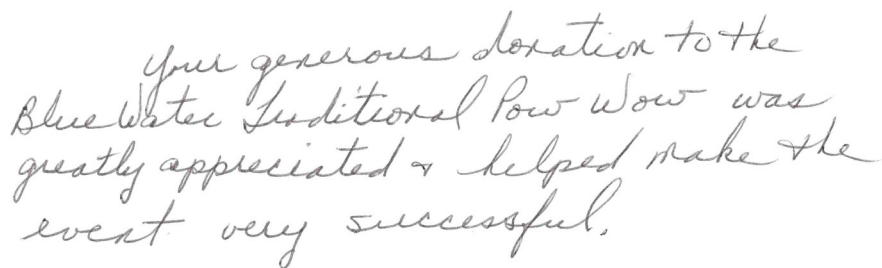 Your generous donation to the
Blue Water Traditional Pow Wow was
greatly appreciated & helped make the
event very successful.